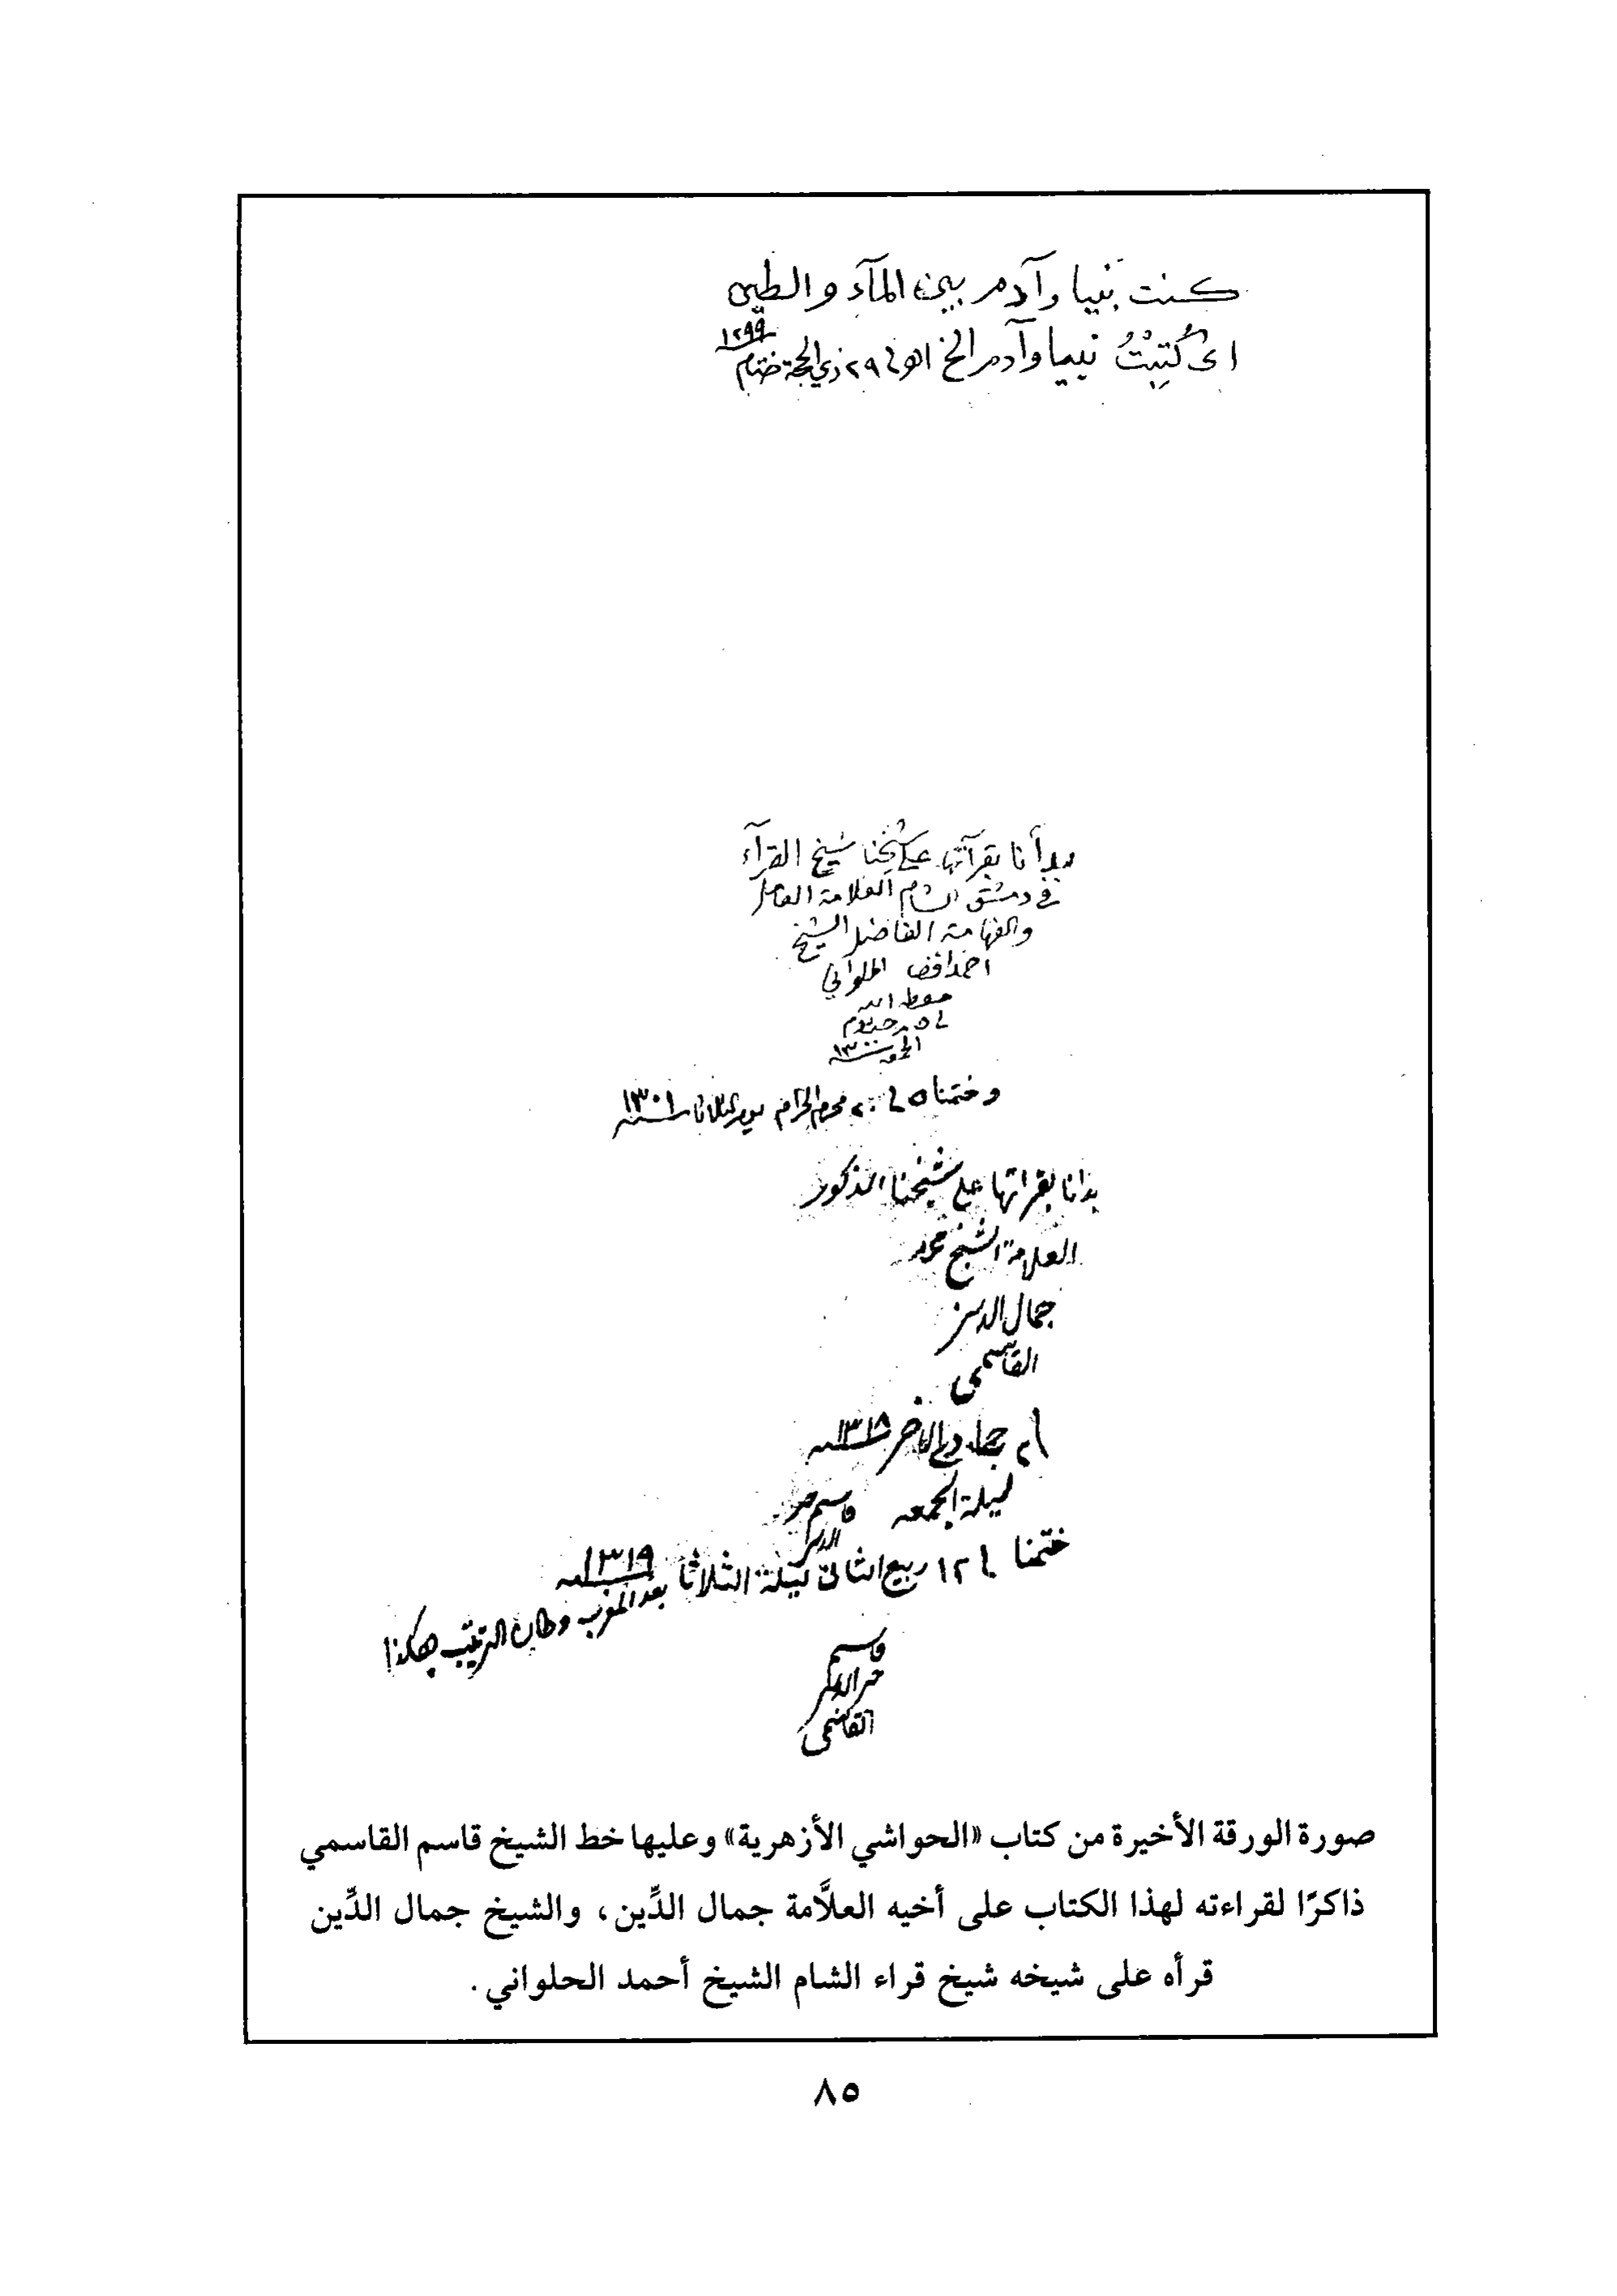 كنت نبيا وآدم بين المآء والطين
اى كُتِبْتُ نبيا وآدم الخ اهـ في ٢٩ ذي الحجة ختام ١٢٩٩
بدأنا بقرآتها على شيخنا شيخ القرآء
في دمشق الشام العلامة العامل
والفهامة الفاضل الشيخ
احمد افندي الحلواني
حفظه الله
في ٥ رجب يوم
١٣٠٠
وختمنا في ٢٠ محرم الحرام يوم الثلاثا سنة ١٣٠١
بدانا بقراتها على شيخنا المذكور
العلامة الشيخ محمد
جمال الدين
القاسمي
جمادى الاخر سنة ١٣١٨
ليلة الجمعه قاسم خير
الدين
ختمنا في ١٢ ربيع الثاني ليلة الثلاثا سنة ١٣١٩
بعد المغرب وكان الترتيب هكذا
قاسم
خير الدين
القاسمي
صورة الورقة الأخيرة من كتاب «الحواشي الأزهرية» وعليها خط الشيخ قاسم القاسمي
ذاكرًا لقراءته لهذا الكتاب على أخيه العلاَّمة جمال الدِّين، والشيخ جمال الدِّين
قرأه على شيخه شيخ قراء الشام الشيخ أحمد الحلواني.
٨٥